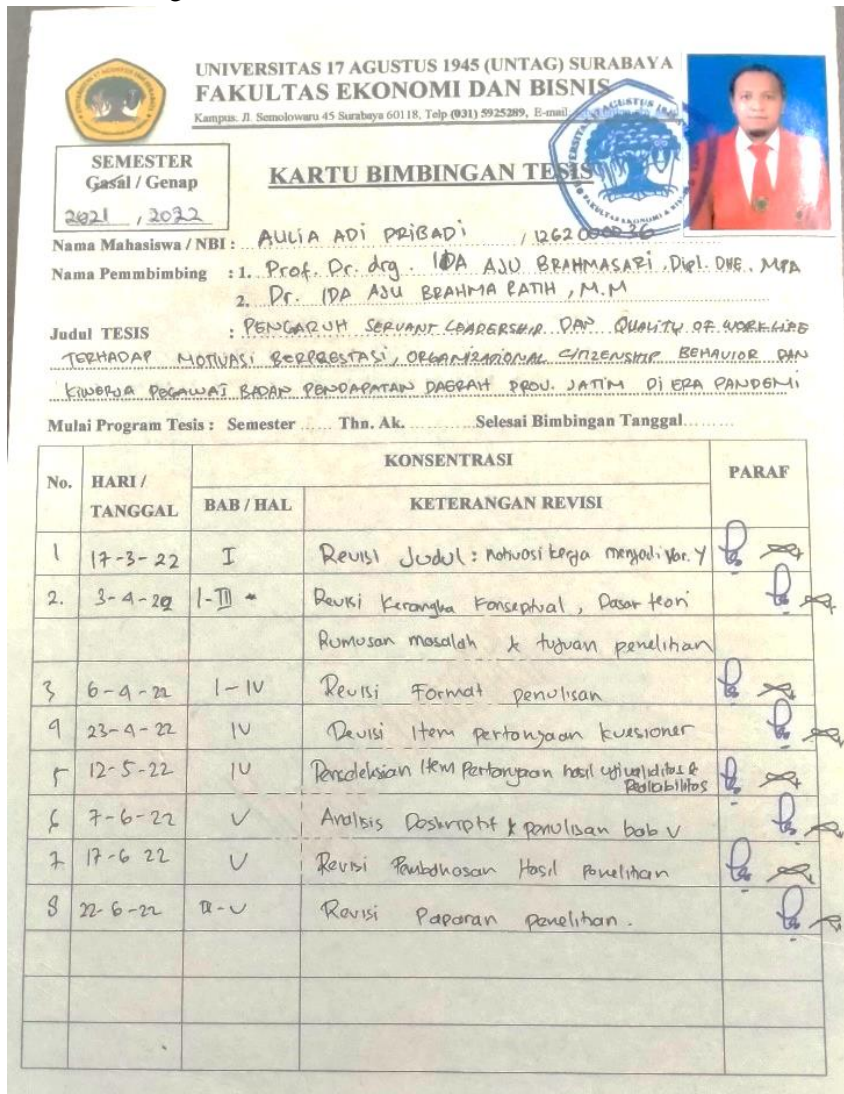 UNIVERSITAS 17 AGUSTUS 1945 (UNTAG) SURABAYA
FAKULTAS EKONOMI DAN BISNIS
Kampus. Jl. Semolowaru 45 Surabaya 60118, Telp (031) 5925289, E-mail
SEMESTER
Gasal / Genap
2021 , 2022
KARTU BIMBINGAN TESIS
Nama Mahasiswa / NBI : AULIA ADI PRIBADI / 1262000036
Nama Pemmbimbing : 1. Prof. Dr. drg. IDA AJU BRAHMASARI, Dipl. DHE, MPA
2. Dr. IDA AJU BRAHMA RATIH, M.M
Judul TESIS : PENGARUH SERVANT LEADERSHIP DAN QUALITY OF WORK LIFE
TERHADAP MOTIVASI BERPRESTASI, ORGANIZATIONAL CITIZENSHIP BEHAVIOR DAN
KINERJA PEGAWAI BADAN PENDAPATAN DAERAH PROV. JATIM DI ERA PANDEMI
Mulai Program Tesis : Semester ...... Thn. Ak. ............Selesai Bimbingan Tanggal.........
No. HARI / TANGGAL KONSENTRASI PARAF
BAB / HAL KETERANGAN REVISI
1 17-3-22 I Revisi Judul : motivasi kerja menjadi Var. Y
2. 3-4-22 I-III Revisi Kerangka Konseptual, Dasar teori
Rumusan masalah & tujuan penelitian
3 6-4-22 I-IV Revisi Format penulisan
4 23-4-22 IV Revisi Item pertanyaan kuesioner
5 12-5-22 IV Penseleksian Item Pertanyaan hasil uji validitas & Realiabilitas
6 7-6-22 V Analisis Deskriptif & penulisan bab V
7 17-6 22 V Revisi Pembahasan Hasil Penelitian
8 22-6-22 -V Revisi Paparan penelitian.